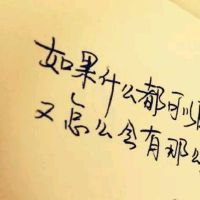 如果什么都可以
又怎么会有那么